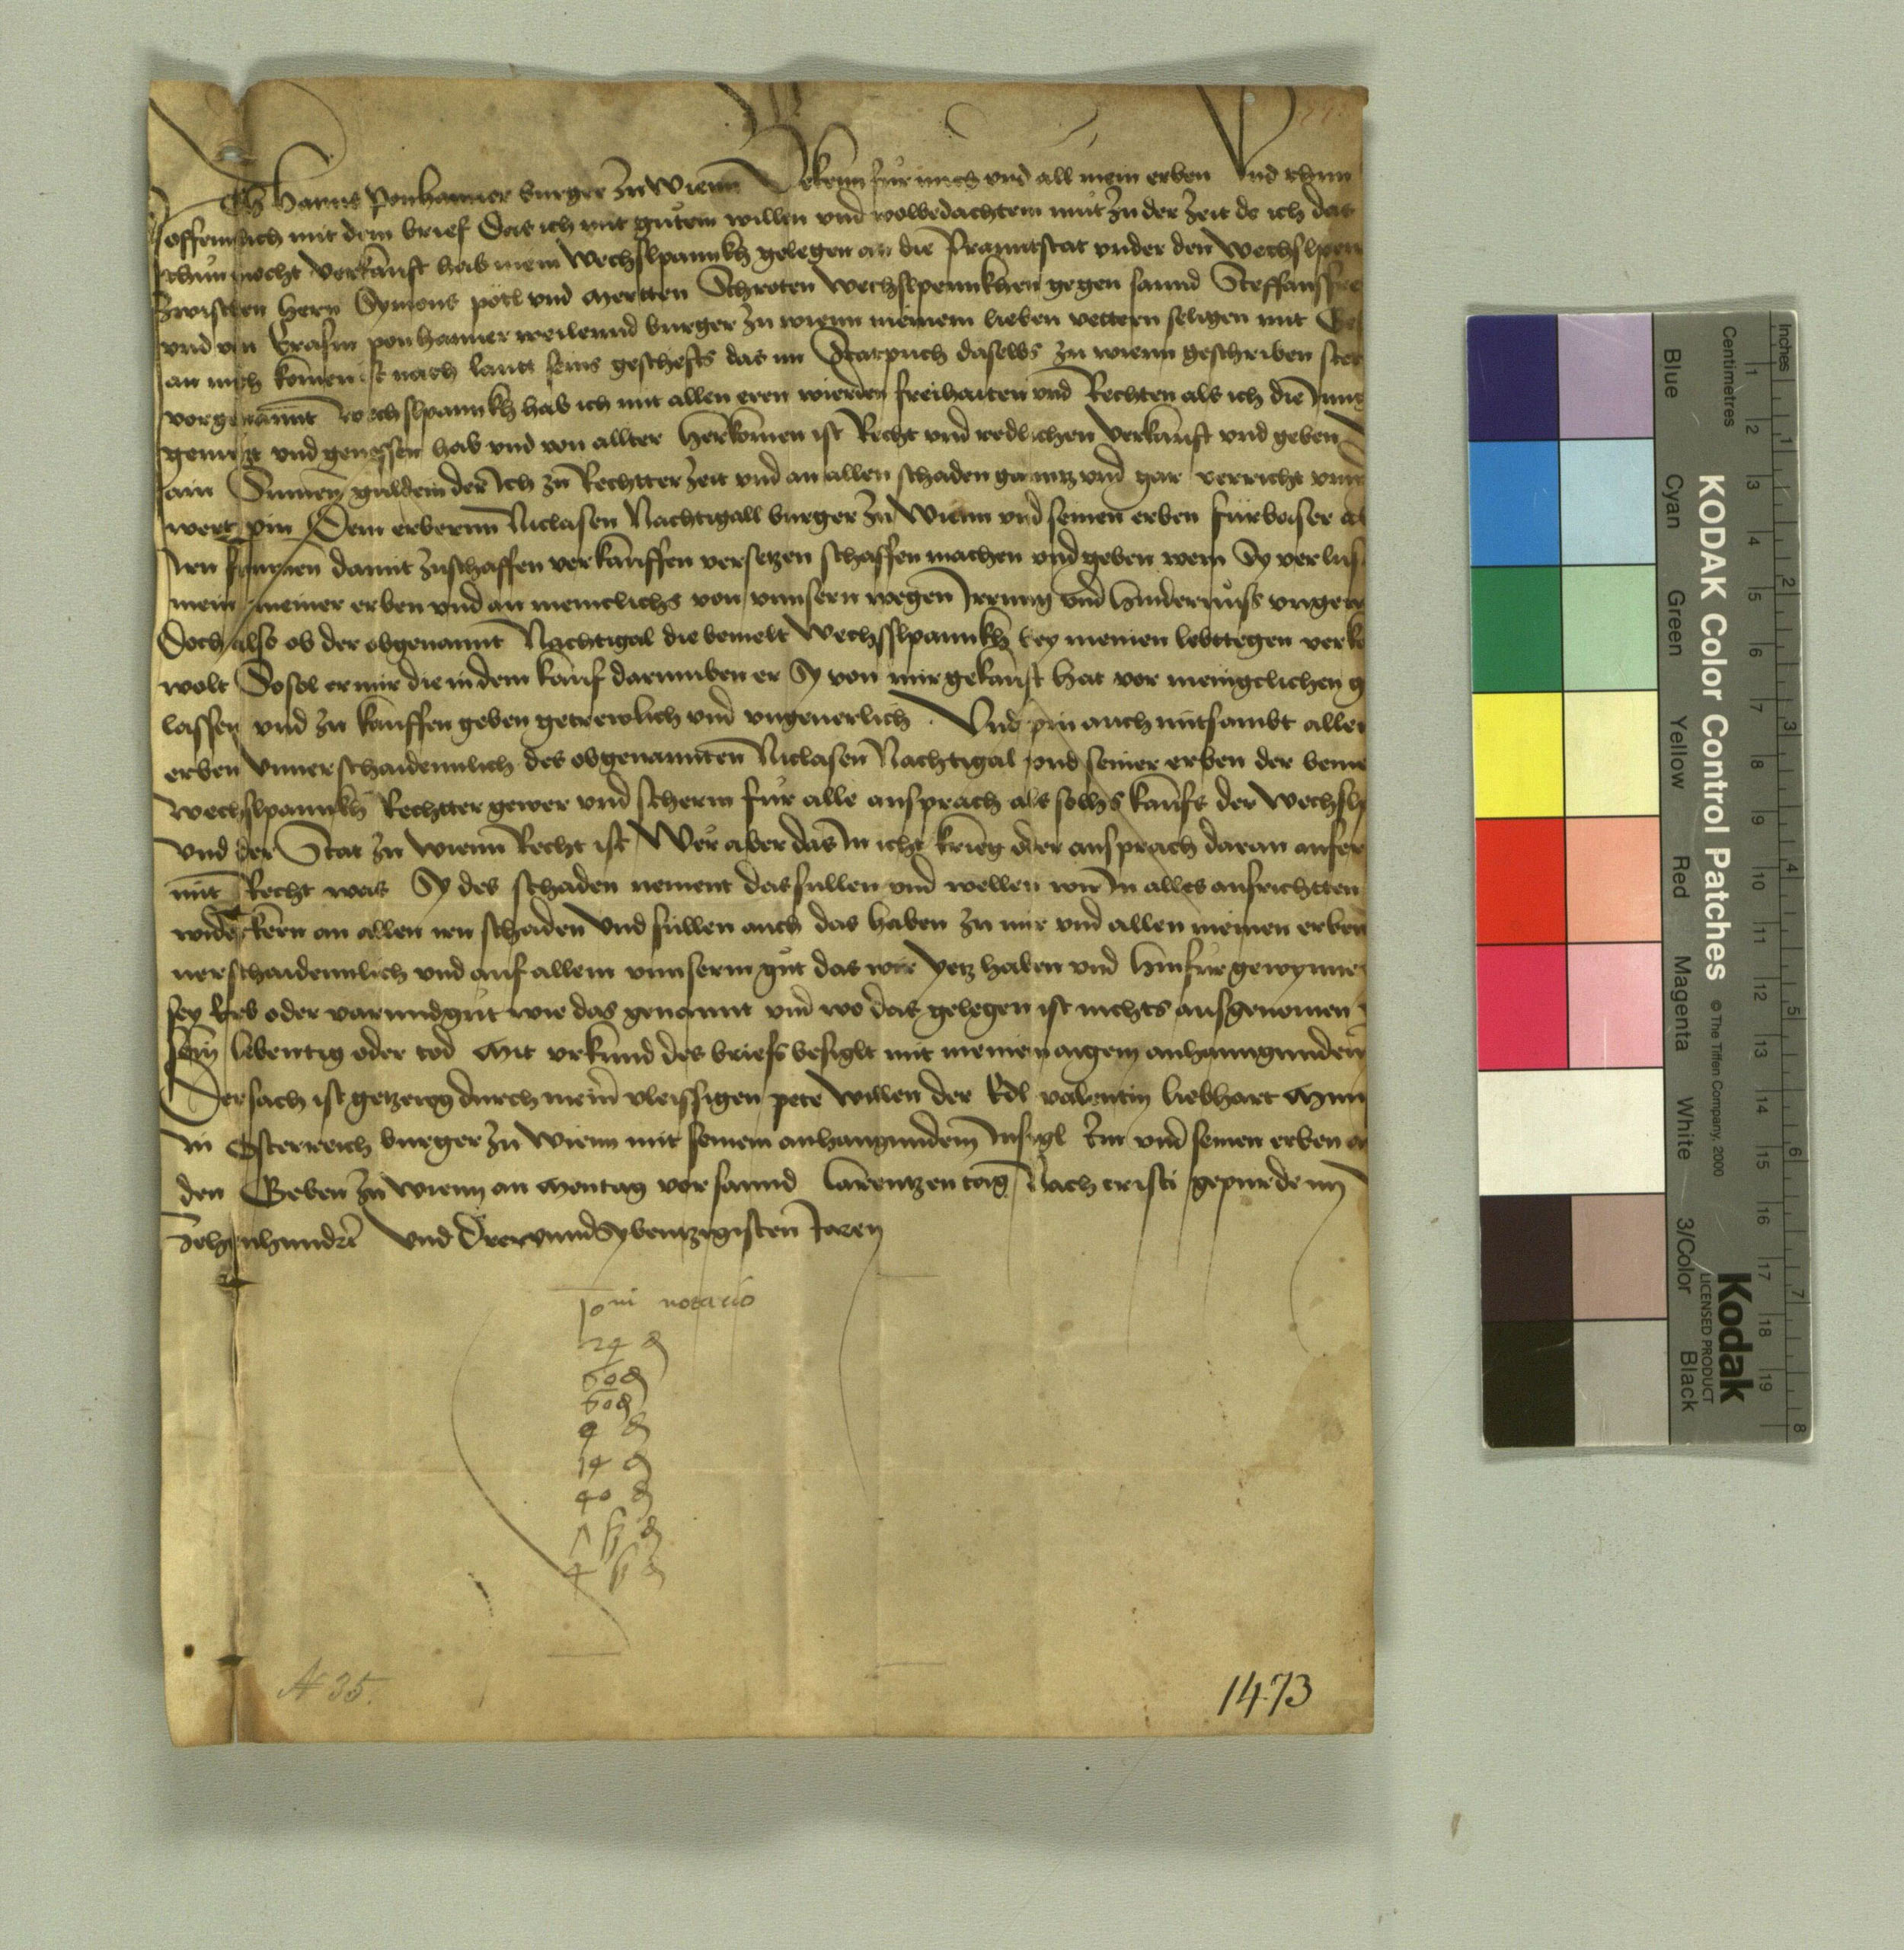 Ich Hanns Ponhaimer burger zu Wienn Bekenn für mich und all mein erben Und thun
offennlich mit dem brief Das ich mit gůtem willen und wolbedachtem můt zu der zeit do ich das
gethůn mocht verkaufft hab mein Wechslpannkh gelegen an die Pranntstat vnder den Wechslpen
zwischen Hern Symons pötl vnd Mertten Schroten Wechslpennkhen gegen sannd Steffansfre
vnd von Erasm ponhaimer weilennd burger zu wienn meinem lieben vettern seligen mit Ges
an mich komen ist nach lautt seins gescheffts das im Statpuch daselbs zu wienn geschriben stet
vorgenannt wechslpannkh hab ich mit allen eren wierden freihaiten vnd Rechten als ich die Inng
genutzt vnd genossen hab vnd von allter Herkomen ist Recht vnd redlichen verkaufft vnd geben
ain Summ guldein der Ich zu Rechtter zeit vnd an allen schaden ganntz vnd gar verricht vnd
wert pin Dem erbernn Niclasen Nachtigall burger zu Wienn vnd seinen erben fürbaser al
Irn frumen damit zuschaffen verkauffen versetzen schaffen machen vnd geben wem Sy verlus
mein meiner erben vnd an meniclichs von vnnsern wegen Irrung vnd hindernůss vngeu
Doch also ob der obgenannt Nachtigal die bemelt Wechsslpannkh bey meinen lebttegen verk
wolt So sol er mir die in dem kauf darumben er Sy von mir gekaufft hat vor menigclichen g
lassen vnd zu kauffen geben getrewlich vnd vngeuerlich . Vnd pin auch mitsambt allen
erben Vnnerschaidennlich des obgenannten Niclasen Nachtigal vnd seiner erben der beme
wechslpannkh Rechtter gewer vnd scherm für alle ansprach als solhs kaufs der Wechslp
vnd der Stat zu wienn Recht ist Wer aber das In icht krieg oder ansprach daran aufer
mit Recht was Sy des schaden nement das sullen vnd wellen wir In alles aufrichtten
widerkern an allen irn schaden Vnd sullen auch das haben zu mir vnd allen meinen erben
nerschaidennlich vnd auf allem vnnserm gůt das wir yetz haben vnd hinfür gewynnen
sey Erb oder varundgůt wie das genannt vnd wo das gelegen ist nichts ausgenomen
sein lebentig oder tod Mit vrkund des briefs besiglt mit meinem aigem anhanngunden
Der sach ist getzewg durch meiner vleissigen pete willen der Edl valentin liebhart Mun
in Osterreich burger zu Wienn mit seinem anhangundem Insigl Im vnd seinen erben an
den Geben zu wienn an Montag vor sannd larentzen tag Nach cristi gepurde im
Zehenhundert vnd Drewundsybentzigisten Jaren
notario
24 ₰
60 ₰
60 ₰
₰
14 ₰
40 ₰
₰
4 ₰
N 35.
1473
KODAK Color Control Patches © The Tiffen Company, 2000
Kodak
LICENSED PRODUCT
Inches 1 2 3 4 5 6 7 8
Centimetres 1 2 3 4 5 6 7 8 9 10 11 12 13 14 15 16 17 18 19
Blue Cyan Green Yellow Red Magenta White 3/Color Black